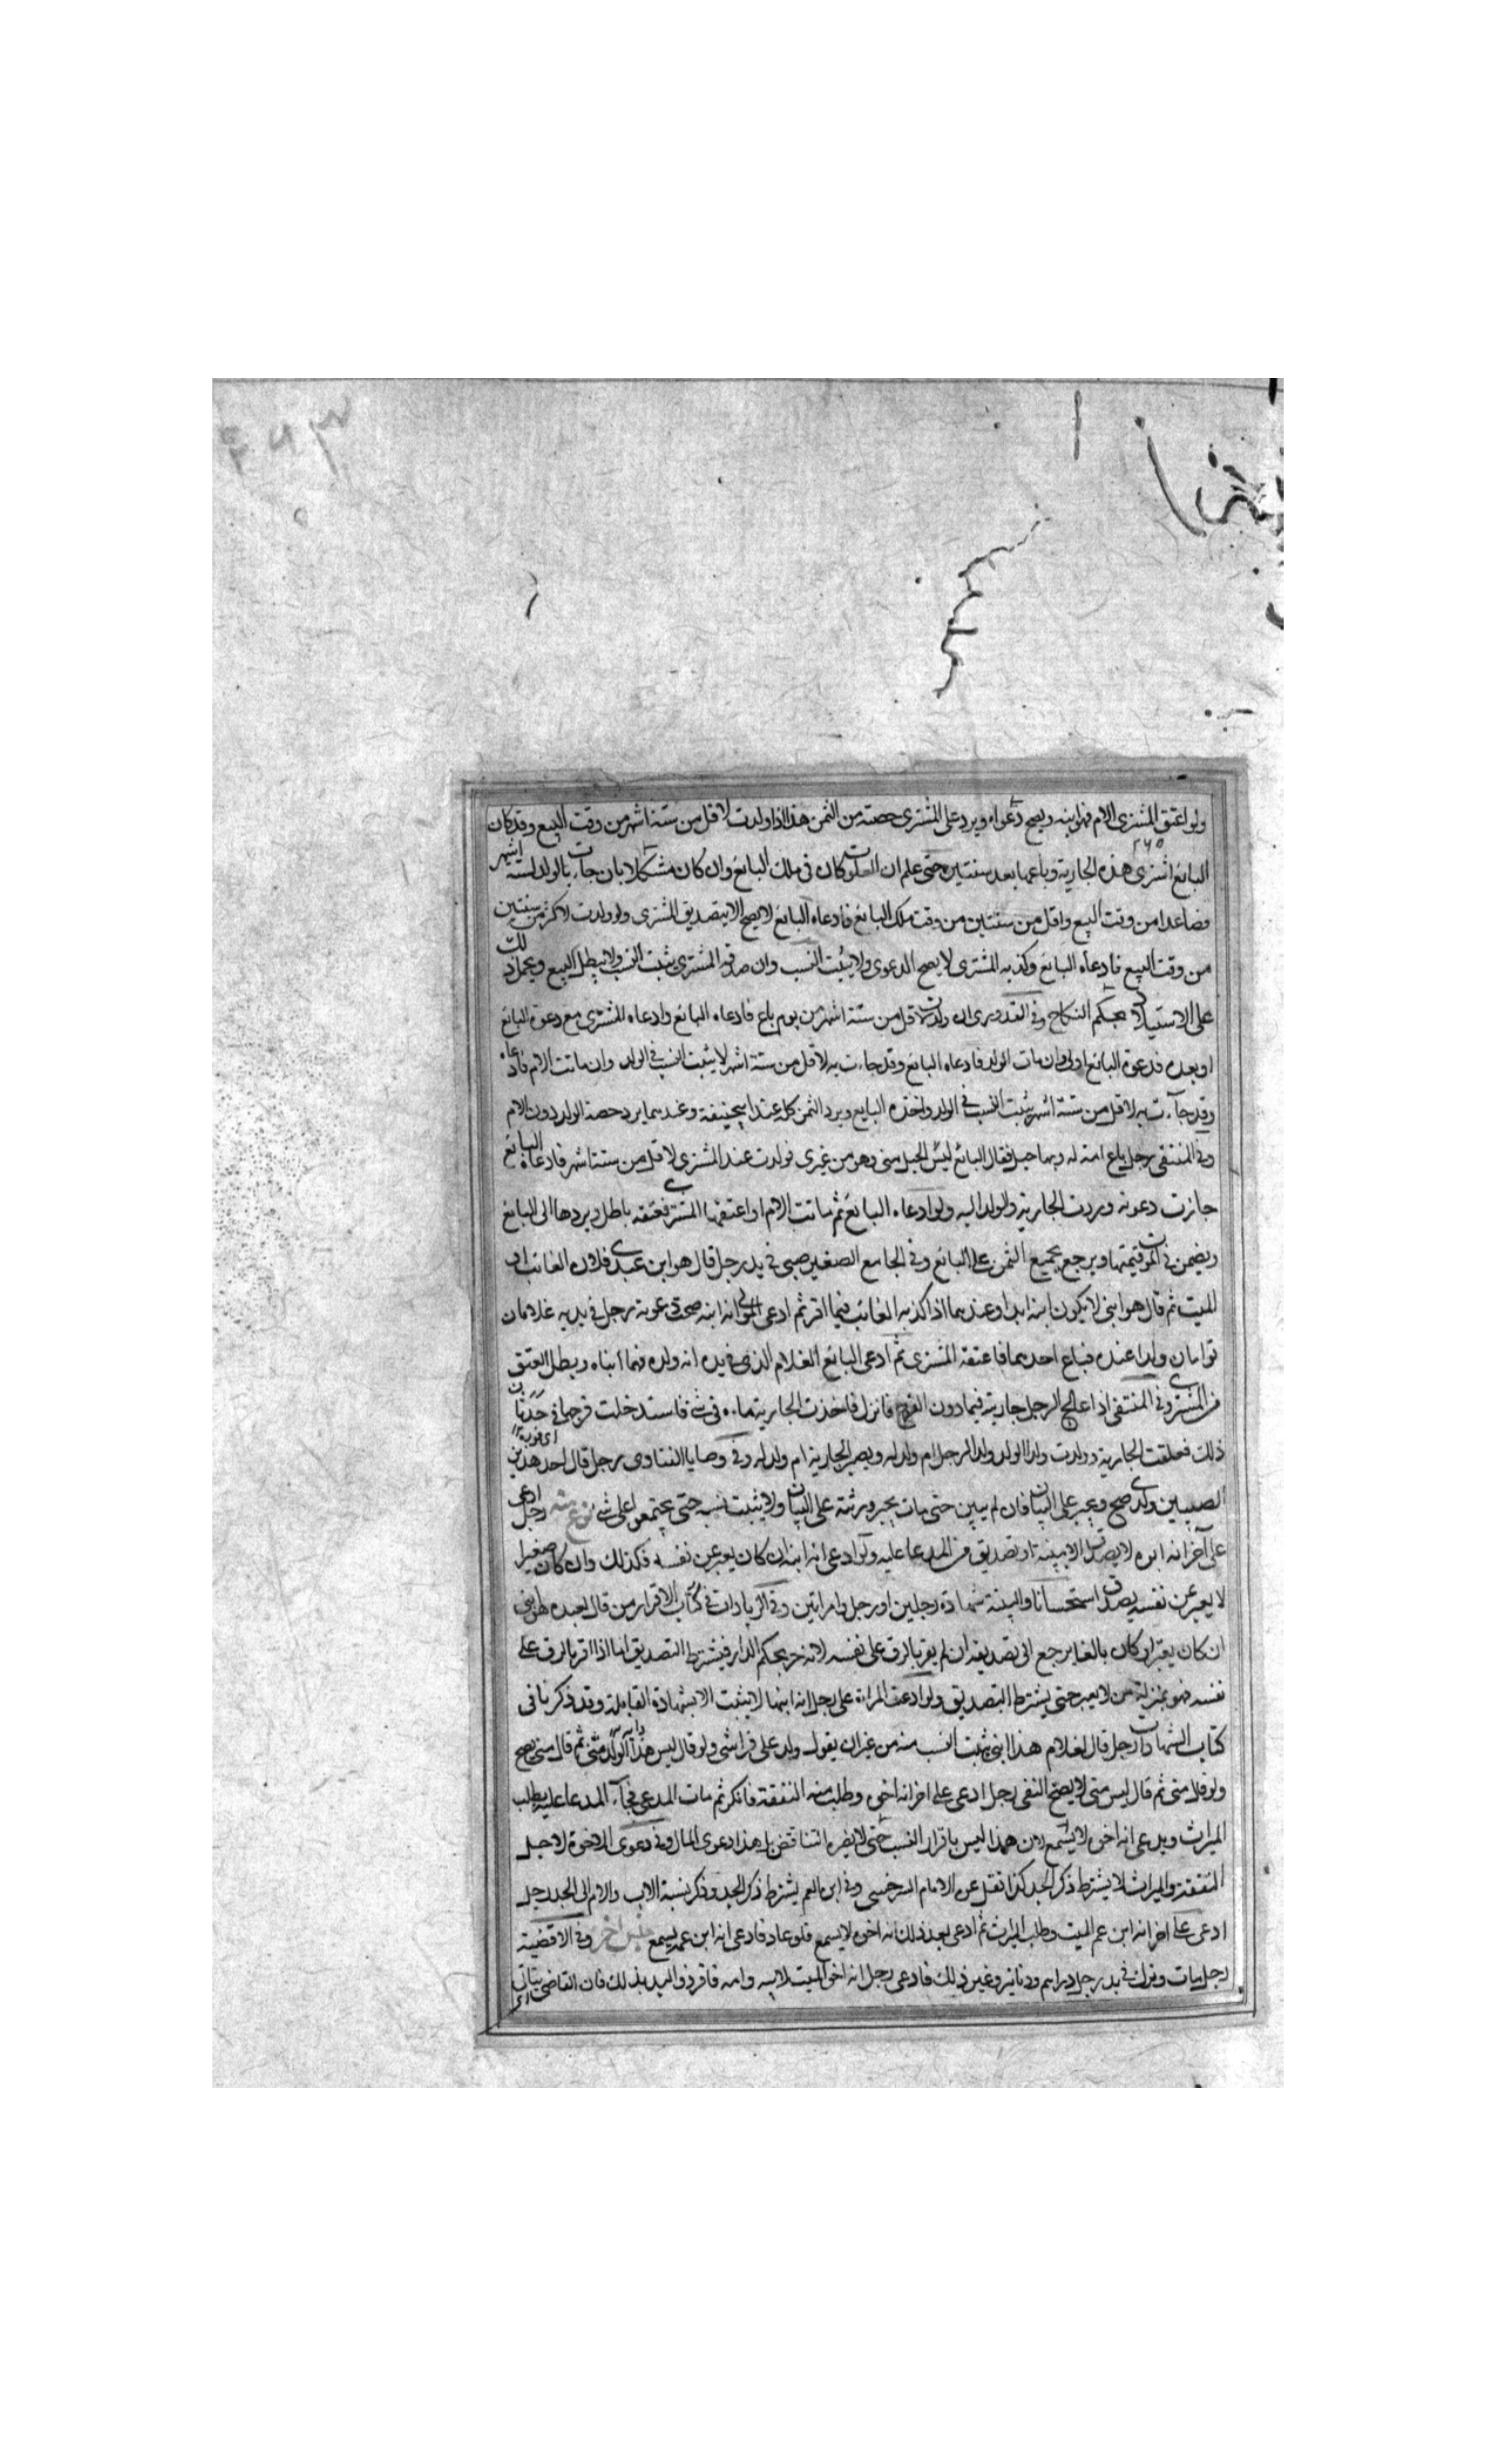 ولو اعتق المشتري الام فهو ابنه ويصح دعواه ويرد على المشتري حصته من الثمن هذا اذا ولدت لاقل من ستة اشهر من وقت البيع وقد كان
البائع اشترى هذه الجارية وباعها بعد سنتين حتى علم ان العلوق كان في ملك البائع وان كان مشكلا بان جاءت بالولد لستة اشهر
فصاعدا من وقت البيع واقل من سنتين من وقت ملك البائع فادعاه البائع لا يصح الا بتصديق المشتري ولو ولدت لاكثر من سنتين
من وقت البيع فادعاه البائع وكذبه المشتري لا يصح الدعوى ولا يثبت النسب وان صدقه المشتري يثبت النسب ولا يبطل البيع ويحمل ذلك
على الاستيلاد بحكم النكاح وفي القدوري ان ولدت لاقل من ستة اشهر من يوم باع فادعاه البائع وادعاه المشتري مع دعوة البائع
او بعده فدعوة البائع اولى وان مات الولد فادعاه البائع وقد جاءت به لاقل من ستة اشهر لا يثبت النسب في الولد وان ماتت الام فادعاه
وقد جاءت به لاقل من ستة اشهر يثبت النسب في الولد واخذه البايع ويرد الثمن كله عند ابيحنيفة وعندهما يرد حصة الولد دون الام
وفي المنتقى رجل باع امة له وبها حبل فقال البائع ليس الحبل مني وهو من غيري فولدت عند المشتري لاقل من ستة اشهر فادعاه البائع
جازت دعوته وردت الجارية والولد اليه ولو ادعاه البائع ثم ماتت الام او اعتقها المشتري فعتقه باطل ويردها الى البائع
ويضمن في الموت قيمتها ويرجع بجميع الثمن على البائع وفي الجامع الصغير صبي في يد رجل قال هو ابن عبدي فلان الغائب او
الميت ثم قال هو ابني لا يكون ابنه ابدا وعندهما اذا كذبه الغائب فيما اقر ثم ادعى المولى انه ابنه صحت دعوته رجل في يديه غلامان
توامان ولدا عنده فباع احدهما فاعتقه المشتري ثم ادعى البائع الغلام الذي في يده انه ولده فهما ابناه ويطل العتق
من المشتري وفي المنتقى اذا عالج الرجل جارية فيما دون الفرج فانزل فاخذت الجارية ماءه في شيء فاستدخلت فرجها في حدثان
ذلك فعلقت الجارية وولدت ولدا الولد ولد الرجل ام ولد له ويصير الجارية ام ولد له وفي وصايا الفتاوى رجل قال احد هذين
الصبيين ولدي صح ويجبر على البيان فان لم يبين حتى مات يجبر ورثته على البيان ولا يثبت نسبه حتى يجتمعوا على شيء نوع منه رجل ادعى
على آخر انه ابوه لا يصدق الا ببينة او تصديق من المدعا عليه ولو ادعى انه ابنه ان كان يعبر عن نفسه فكذلك وان كان صغيرا
لا يعبر عن نفسه يصدق استحسانا والبينة شهادة رجلين او رجل وامراتين وفي الزيادات في كتاب الاقرار من قال لعبده هو ابني
ان كان يعبر او كان بالغا يرجع الى تصديقه ان لم يقر بالرق على نفسه لانه حر بحكم الدار فيشترط التصديق اما اذا اقر بالرق على
نفسه فهو بمنزلة من لا يعبر حتى يشترط التصديق ولو ادعت المراة على رجل انه ابنها لا يثبت الا بشهادة القابلة وقد ذكرنا في
كتاب الشهادات رجل قال لغلام هذا ابني يثبت النسب منه من غير ان يقول ولد على فراشي ولو قال ليس هذا الولد مني ثم قال مني يصح
ولو قال مني ثم قال ليس مني لا يصح النفي رجل ادعى على اخر انه اخي وطلب منه النفقة فانكر ثم مات المدعي فجاء المدعا عليه يطلب
الميراث ويدعي انه اخوه لا يسمع لان هذا ليس باقرار النسب حتى لا يضره التناقض بل هذا دعوى المال وفي دعوى الاخوة لاجل
النفقة والميراث لا يشترط ذكر الجد كذا نقل عن الامام السرخسي وفي ابن العم يشترط ذكر الجد وذكر نسبة الاب والام الى الجد رجل
ادعى على اخر انه ابن عم الميت وطلب الميراث ثم ادعى بعد ذلك انه اخوه لا يسمع فلو عاد فادعى انه ابن عمه يسمع جنس آخر وفي الاقضية
رجل مات وترك في يد رجل دراهم ودنانير وغير ذلك فادعى رجل انه اخو الميت لابيه وامه فاقر ذو اليد بذلك فان القاضي يتاني